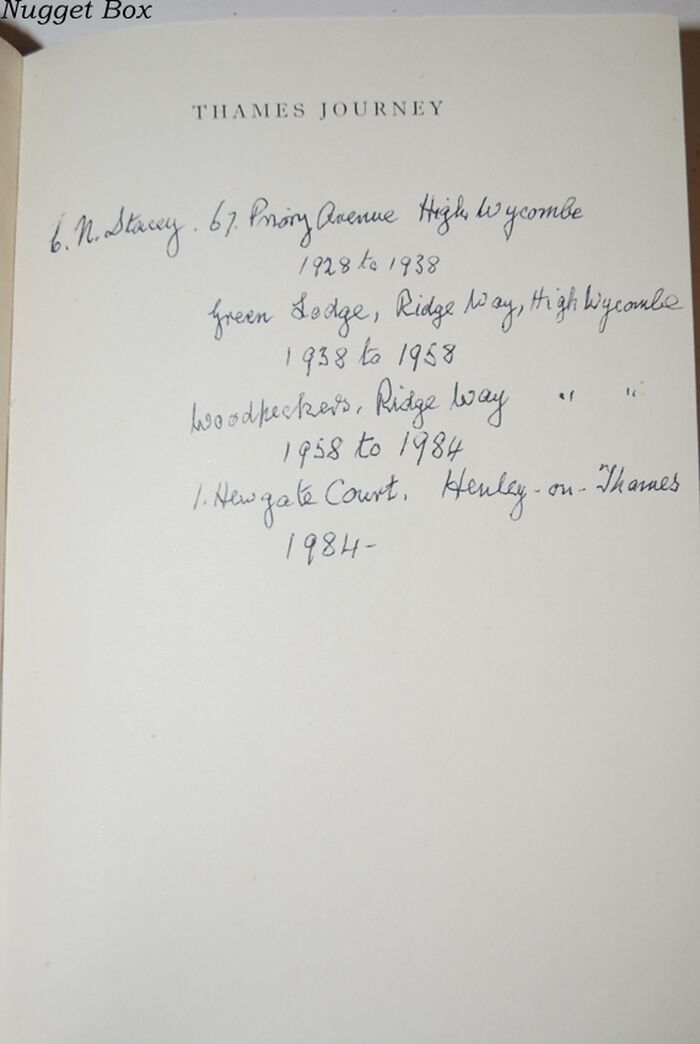 Nugget Box
THAMES JOURNEY
N. Stacey. 67. Priory Avenue High Wycombe
1928 to 1938
Green Lodge, Ridge Way, High Wycombe
1938 to 1958
Woodpeckers, Ridge Way " "
1958 to 1984
1. Newgate Court, Henley-on-Thames
1984-